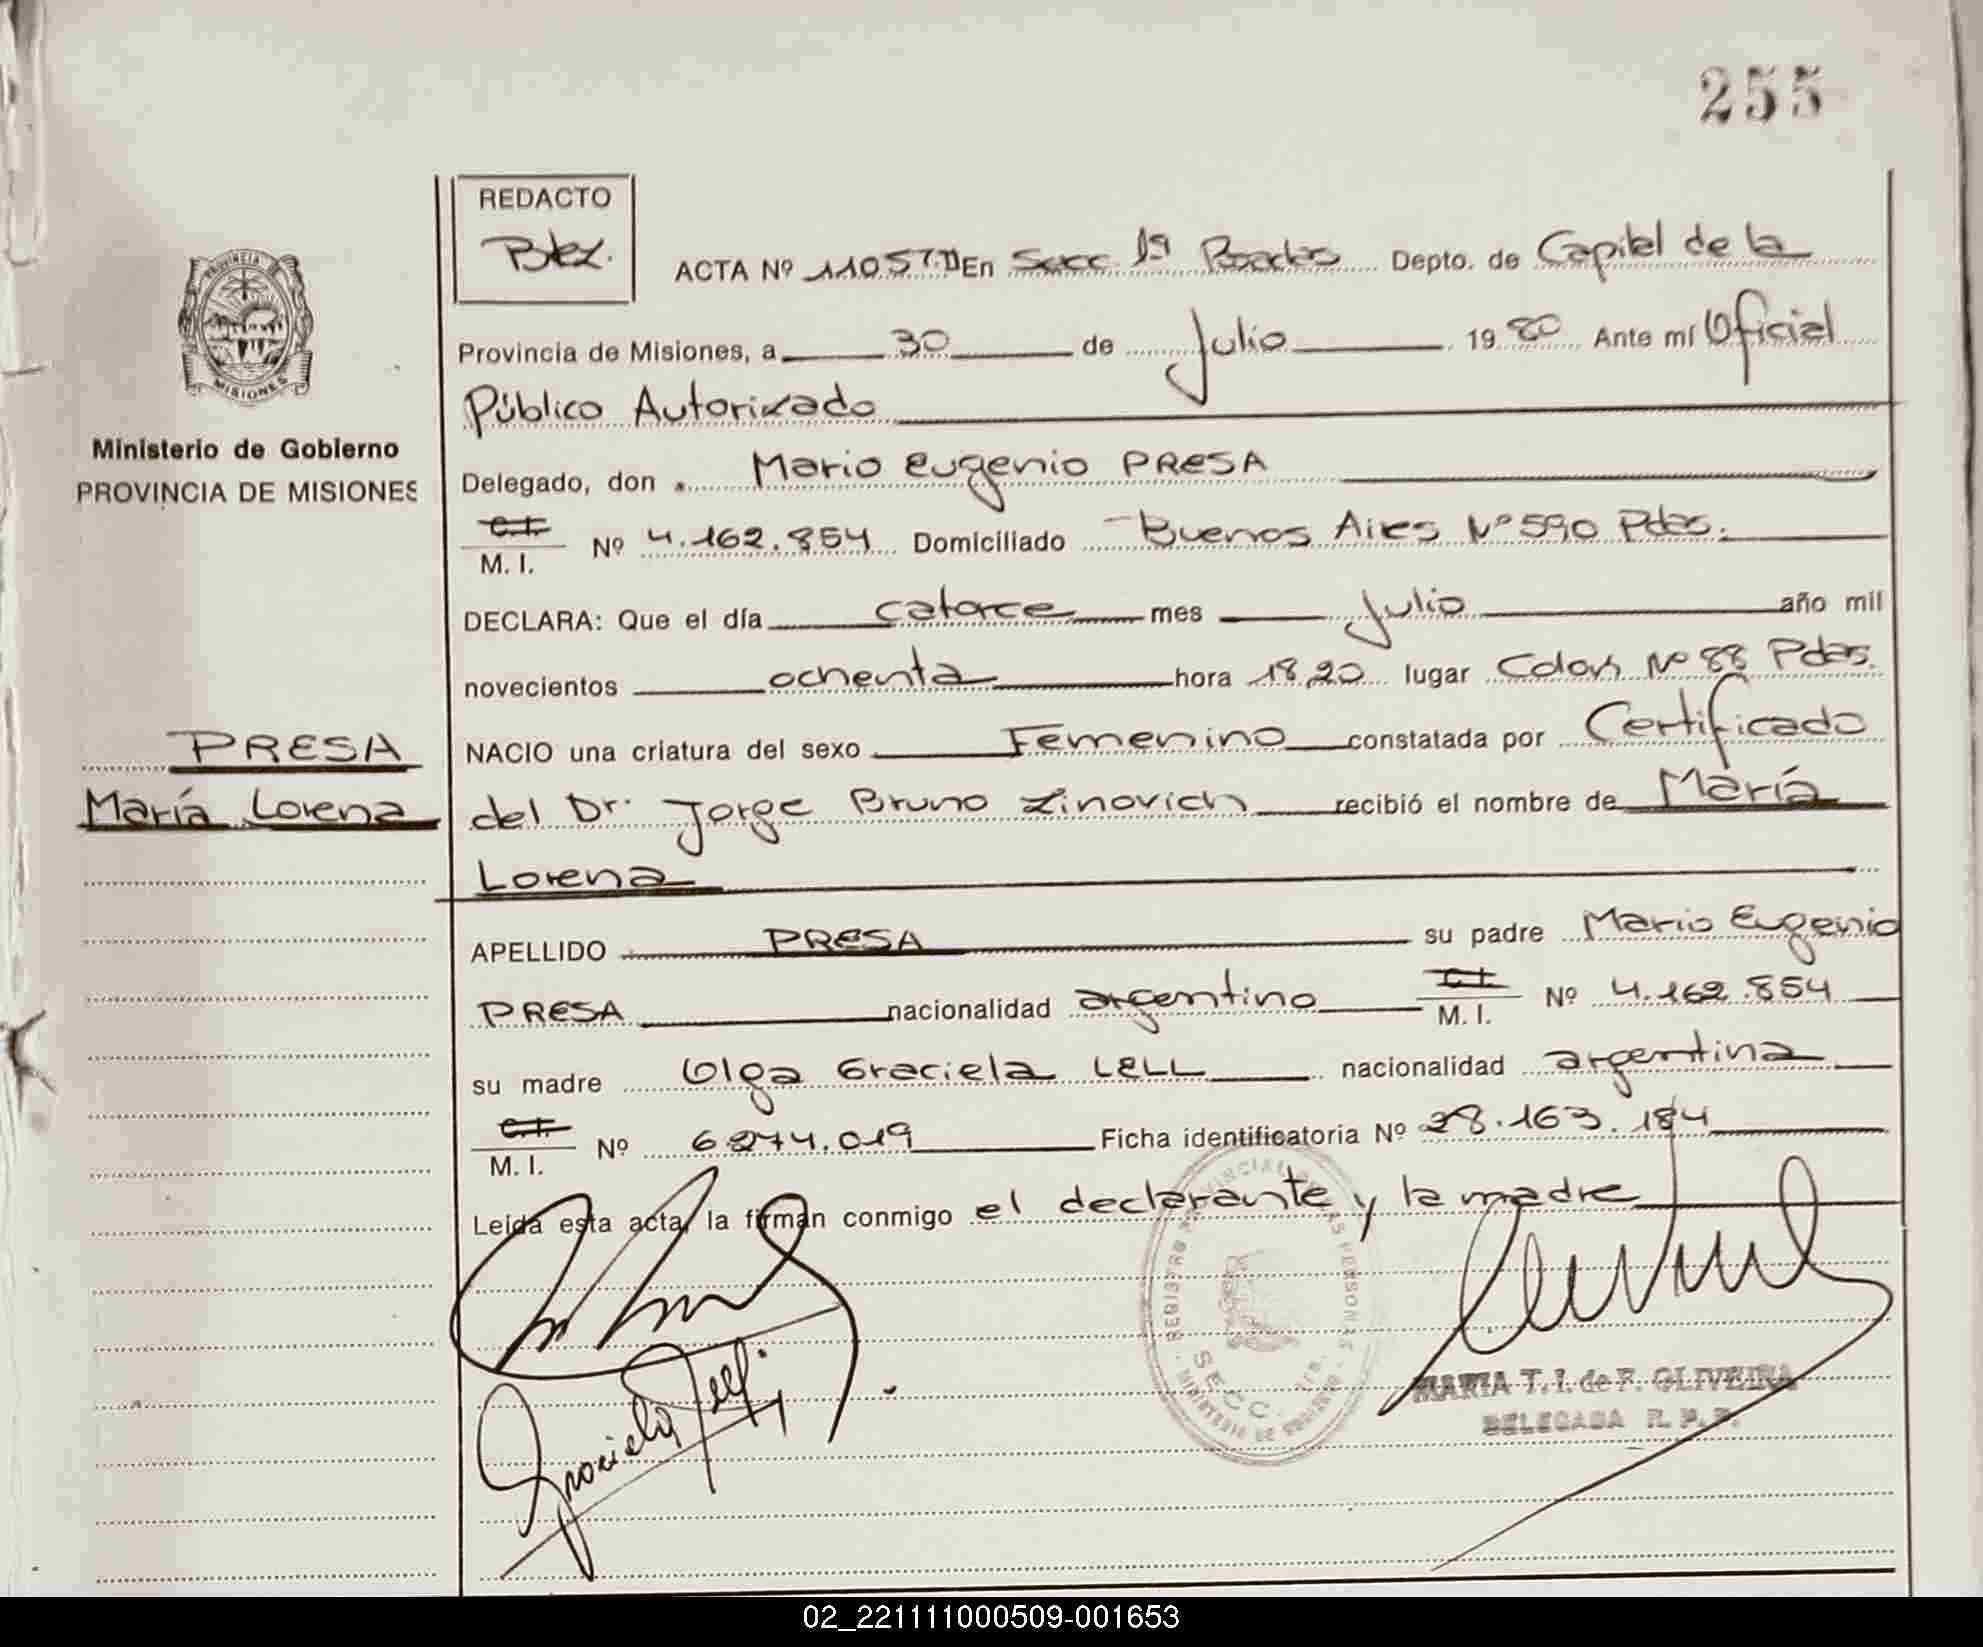 255
REDACTO
ACTA Nº 1105 T.II En Secc. 1ª Posadas Depto. de Capital de la
Provincia de Misiones, a 30 de Julio 1980 Ante mí Oficial
Público Autorizado
Delegado, don Mario Eugenio PRESA
C.I. M. I. Nº 4.162.854 Domiciliado Buenos Aires Nº 590 Pdas.
DECLARA: Que el día catorce mes Julio año mil
novecientos ochenta hora 18,20 lugar Colón Nº 88 Pdas.
NACIO una criatura del sexo Femenino constatada por Certificado
del Dr. Jorge Bruno Zinovich recibió el nombre de María
Lorena
APELLIDO PRESA su padre Mario Eugenio
PRESA nacionalidad argentino C.I. M. I. Nº 4.162.854
su madre Olga Graciela LELL nacionalidad argentina
C.I. M. I. Nº 6274.019 Ficha identificatoria Nº 28.163.184
Leída esta acta, la firman conmigo el declarante y la madre
PROVINCIA DE
MISIONES
Ministerio de Gobierno
PROVINCIA DE MISIONES
PRESA
María Lorena
Graciela Lell
SECC.
MARIA T. I. de F. OLIVEIRA
DELEGADA R. P. P.
02_221111000509-001653